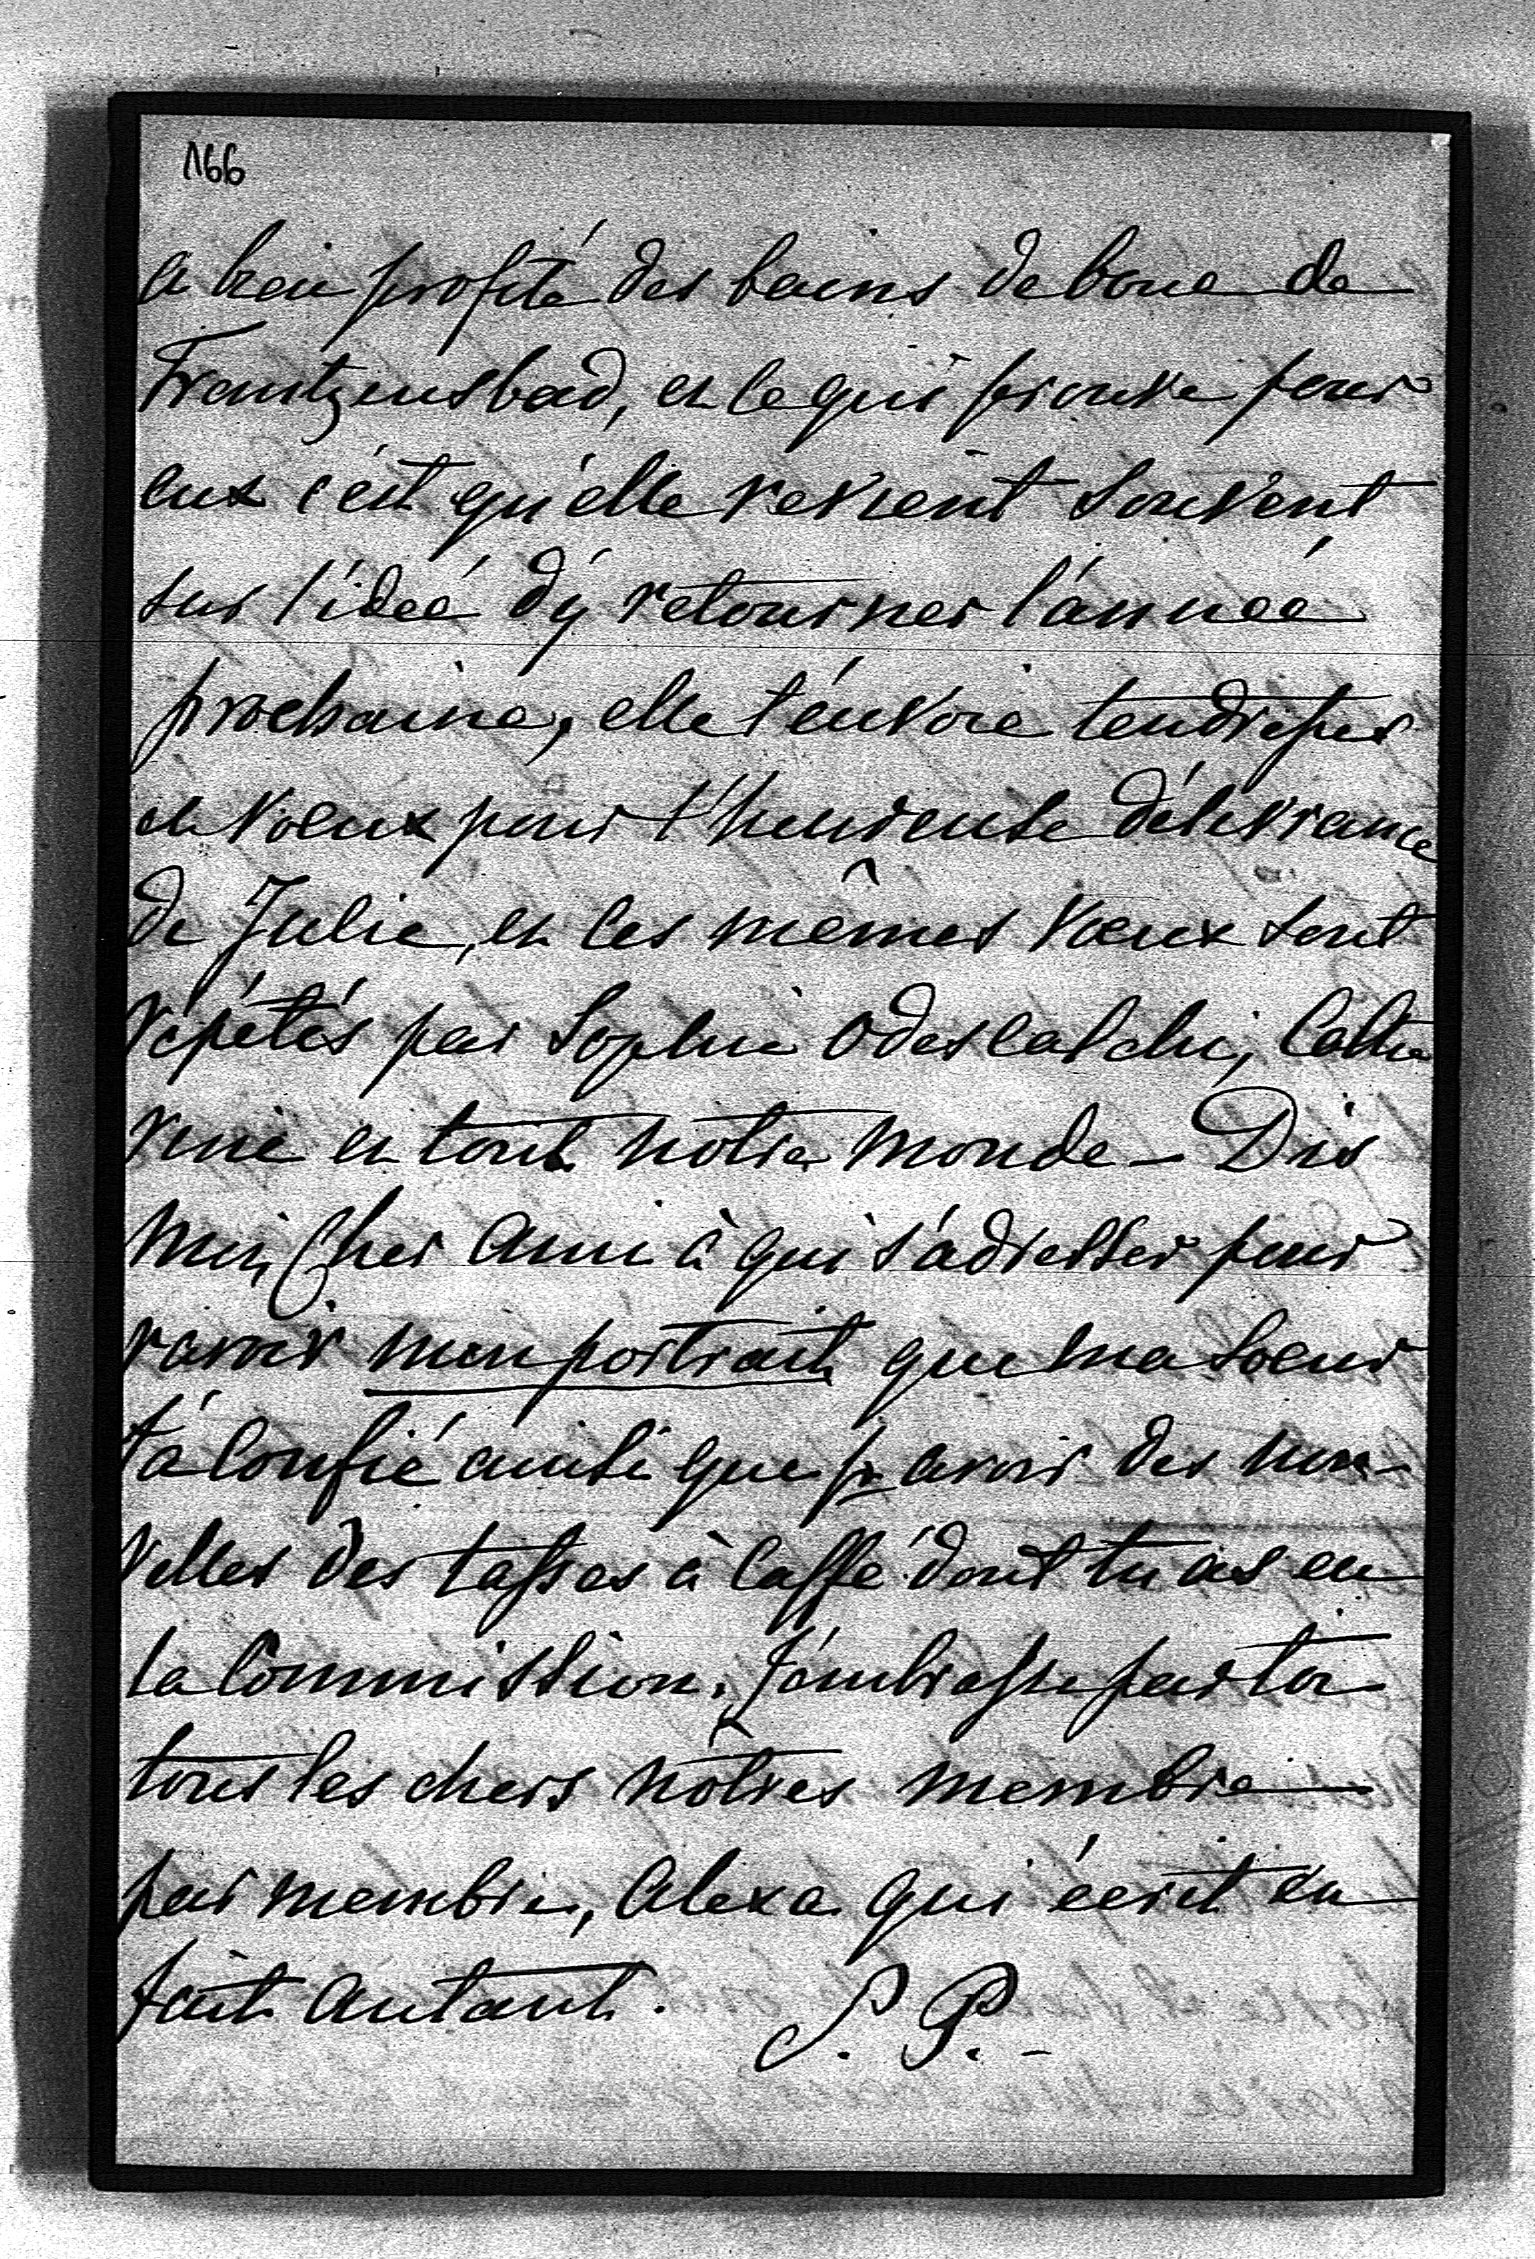 166
a bien profité des bains de boue de
Frantzensbad, et ce qui prouve pour
eux c'est qu'elle revient souvent
sur l'idée d'y retourner l'année
prochaine, elle t'envoie tendresses
et voeux pour l'heureuse délivrance
de Julie, et ces mêmes voeux sont
répétés par Sophie Odescalchi, Cathe
rine et tout notre monde – Dis
moi, Cher Ami à qui s'adresser pour
ravoir mon portrait que ma soeur
t'a confié ainsi que pr avoir des nou-
velles des tasses à Caffé dont tu as eu
la Commission. J'embrasse par toi
tous les chers nôtres membre
par membre, Alexa qui écrit en
fait autant. S. P. –